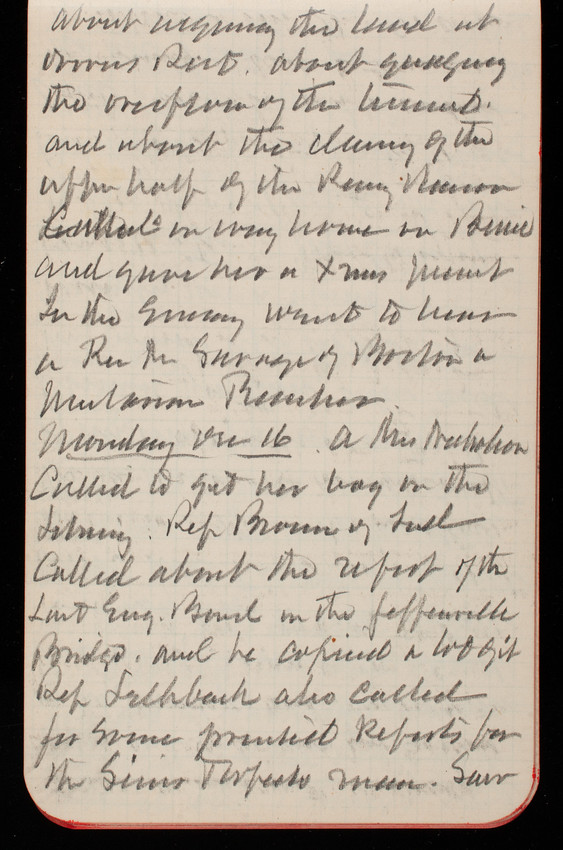 about acquiring the land at
about guaging
the overflow of the tunnel.
and about the cleaning of the
upper half of the
on way home on Bessie
and gave her a Xmas present
In the Evening went to hear
a Rev Mr Savage of Boston a
Unitarian Preacher.
Monday Dec 16. A Mrs Nicholson
Called to get her boy on the
Rep Brown of Ind
Called about the report of the
last Eng. Board on the Jeffersonville
Bridge. and he copied a lot of it
Rep Lehlbach also called
for some printed Reports for
the Sims Torpedo man. Saw